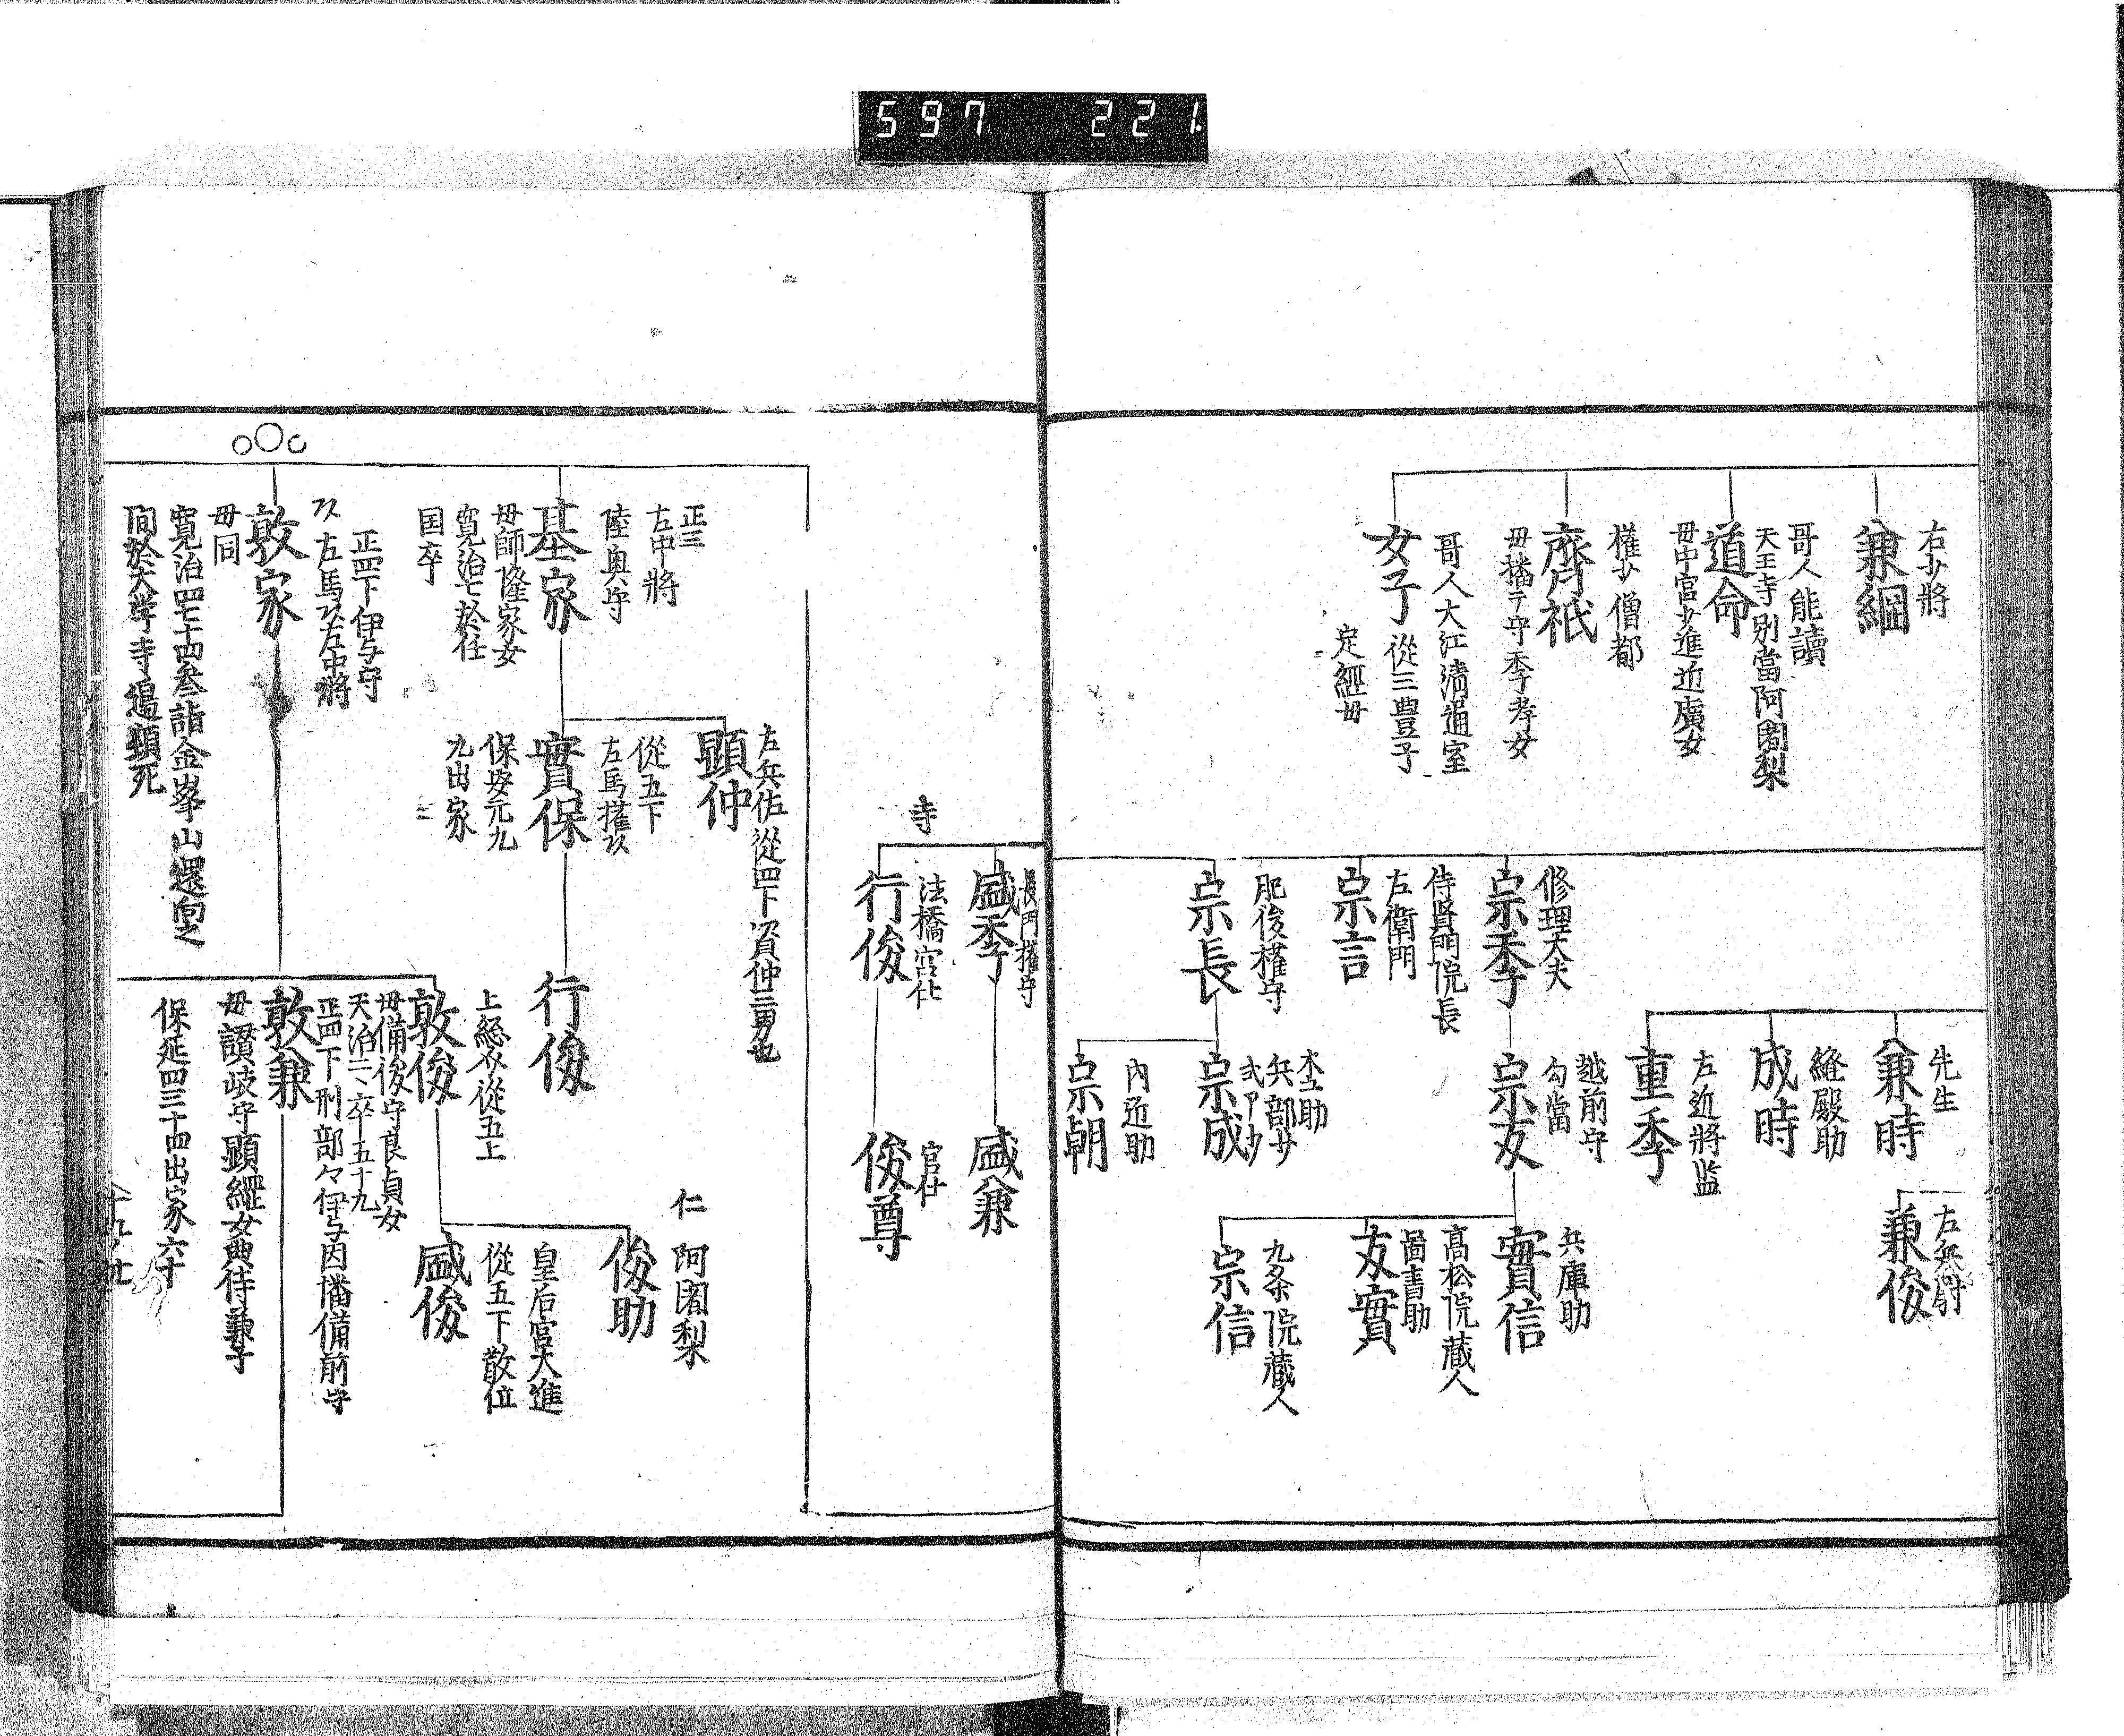 597 221
右少將
兼綱
哥人能讀
天王寺別當阿闍梨
道命
母中宮少進近廣女
權少僧都
齊祇
母播テ守季孝女
哥人大江清通室
女子 從三豊子
定經母
修理大夫
宗季
侍賢門院長
左衛門
宗言
肥後權守
宗長
先生
兼時
縫殿助
成時
左近將監
重季
越前守
勾當
宗友
木工助
兵部少
宗成
內匠助
宗朝
左兵衛尉
兼俊
兵庫助
實信
髙松院藏人
圖書助
友實
九条院藏人
宗信
長門權守
盛季
寺
法橋宮仕
行俊
盛兼
官仕
俊尊
正三
左中將
陸奥守
基家
母師隆家女
寛治七於任
国卒
正四下伊与守
左馬以左中將
敦家
母同
寛治四七十四参詣金峯山還向之
間於大学寺邉頓死
左兵佐從四下資仲三男也
顕仲
從五下
左馬權以
實保
保安元九
九出家
行俊
上総介從五上
敦俊
母備後守良貞女
天治二、卒五十九
正四下刑部々伊与因播備前守
敦兼
母讃岐守顕綱女典侍兼子
保延四三十四出家六十
仁 阿闍梨
俊助
皇后宮大進
從五下散位
盛俊